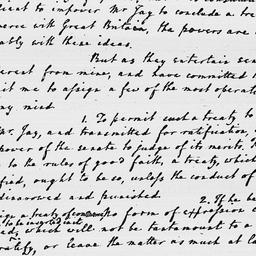 cient to impower Mr Jay to conclude a trea
merce with Great Britain, the powers are
ably with these ideas.
But as they entertain sen
erent from mine, and have committed
it me to assign a few of the most operat
my mind
1. To permit such a treaty to
Mr. Jay, and transmitted for ratification,
power of the senate to judge of its merits,
n to the rules of good faith, a treaty, which
fied, ought to be so, unless the conduct of
disavowed and punished.
2. If he be
sign a treaty of commerce no form of expression
to be ingrafted
ed, which will not be tantamount to a
ratify, or leave the matter as much at la